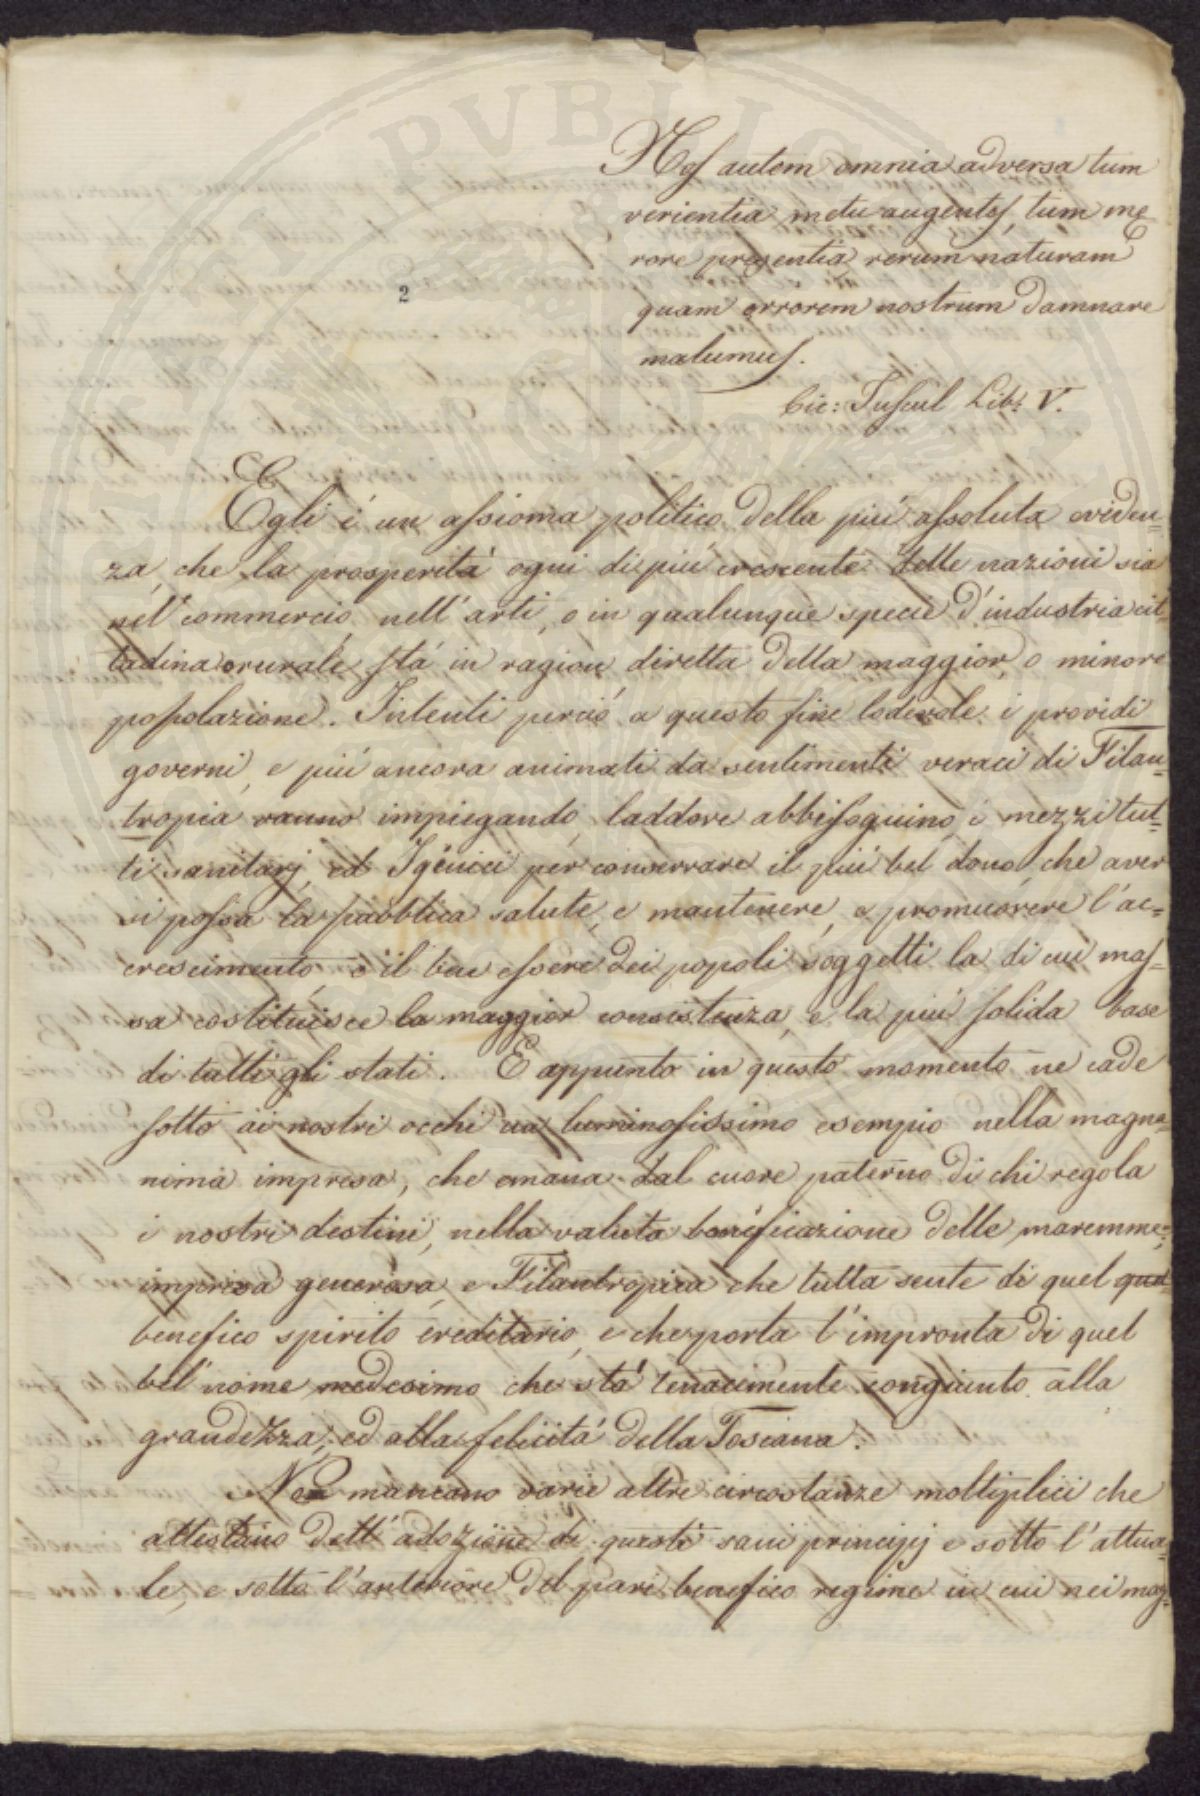 Nos autem omnia adversa tum
verientia metu augentes, tum me
rore presentia rerum naturam
2
quam errorem nostrum damnare
malumus.
Cic: Tuscul Lib: V.
Egli é un assioma politico della piú assoluta eviden=
za, che la prosperitá ogni di piú crescente delle nazioni sia
nel commercio, nell'arti, o in qualunque specie d'industria cit=
tadina o rurale stá in ragion diretta della maggior, o minore
popolazione. Intenti perció a questo fine lodevole i providi
governi, e piú ancora animati da sentimenti veraci di Filan=
tropia vanno impiegando, laddove abbisognino, i mezzi tut=
ti sanitarj, ed Igénici per conservare il piú bel dono, che aver
si possa la pubblica salute, e mantenere, e promuovere l'ac=
crescimento, e il ben essere dei popoli soggetti la di cui mas=
sa costituisce la maggior consistenza, e la piú solida base
di tutti gli stati. E appunto in questo momento ne cade
sotto ai nostri occhi un luminosissimo esempio nella magna=
nima impresa, che emana dal cuore paterno di chi regola
i nostri destini, nella valuta bonificazione delle maremme;
impresa generosa, e Filantropica che tutta sente di quel
benefico spirito ereditario, e che porta l'impronta di quel
bel nome medesimo che stá tenacemente congiunto alla
grandezza, ed alla felicitá della Toscana.
Non mancano varie altre circostanze moltiplici che
attestano dell'adozione di questi sani principj e sotto l'attua=
le, e sotto l'anteriore del pari benefico regime in cui nei mag=